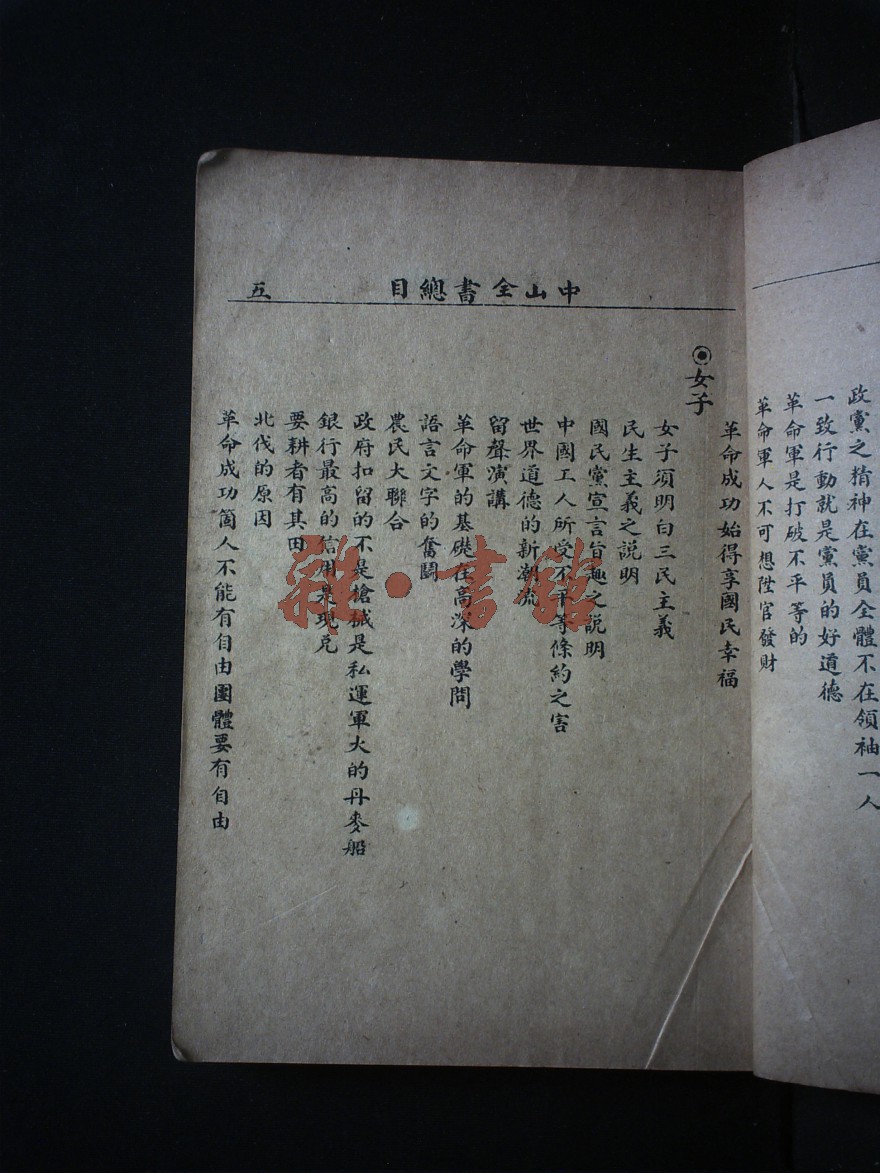 政黨之精神在黨員全體不在領袖一人
一致行動就是黨員的好道德
革命軍是打破不平等的
革命軍人不可想陞官發財
中山全書總目
五
革命成功始得享國民幸福
◉女子
女子須明白三民主義
民生主義之説明
國民黨宣言旨趣之説明
中國工人所受不平等條約之害
世界道德的新潮流
留聲演講
革命軍的基礎在高深的學問
語言文字的奮鬪
農民大聯合
政府扣留的不是槍械是私運軍火的丹麥船
銀行最高的信用是現兌
要耕者有其田
北伐的原因
革命成功箇人不能有自由團體要有自由
雜·書館